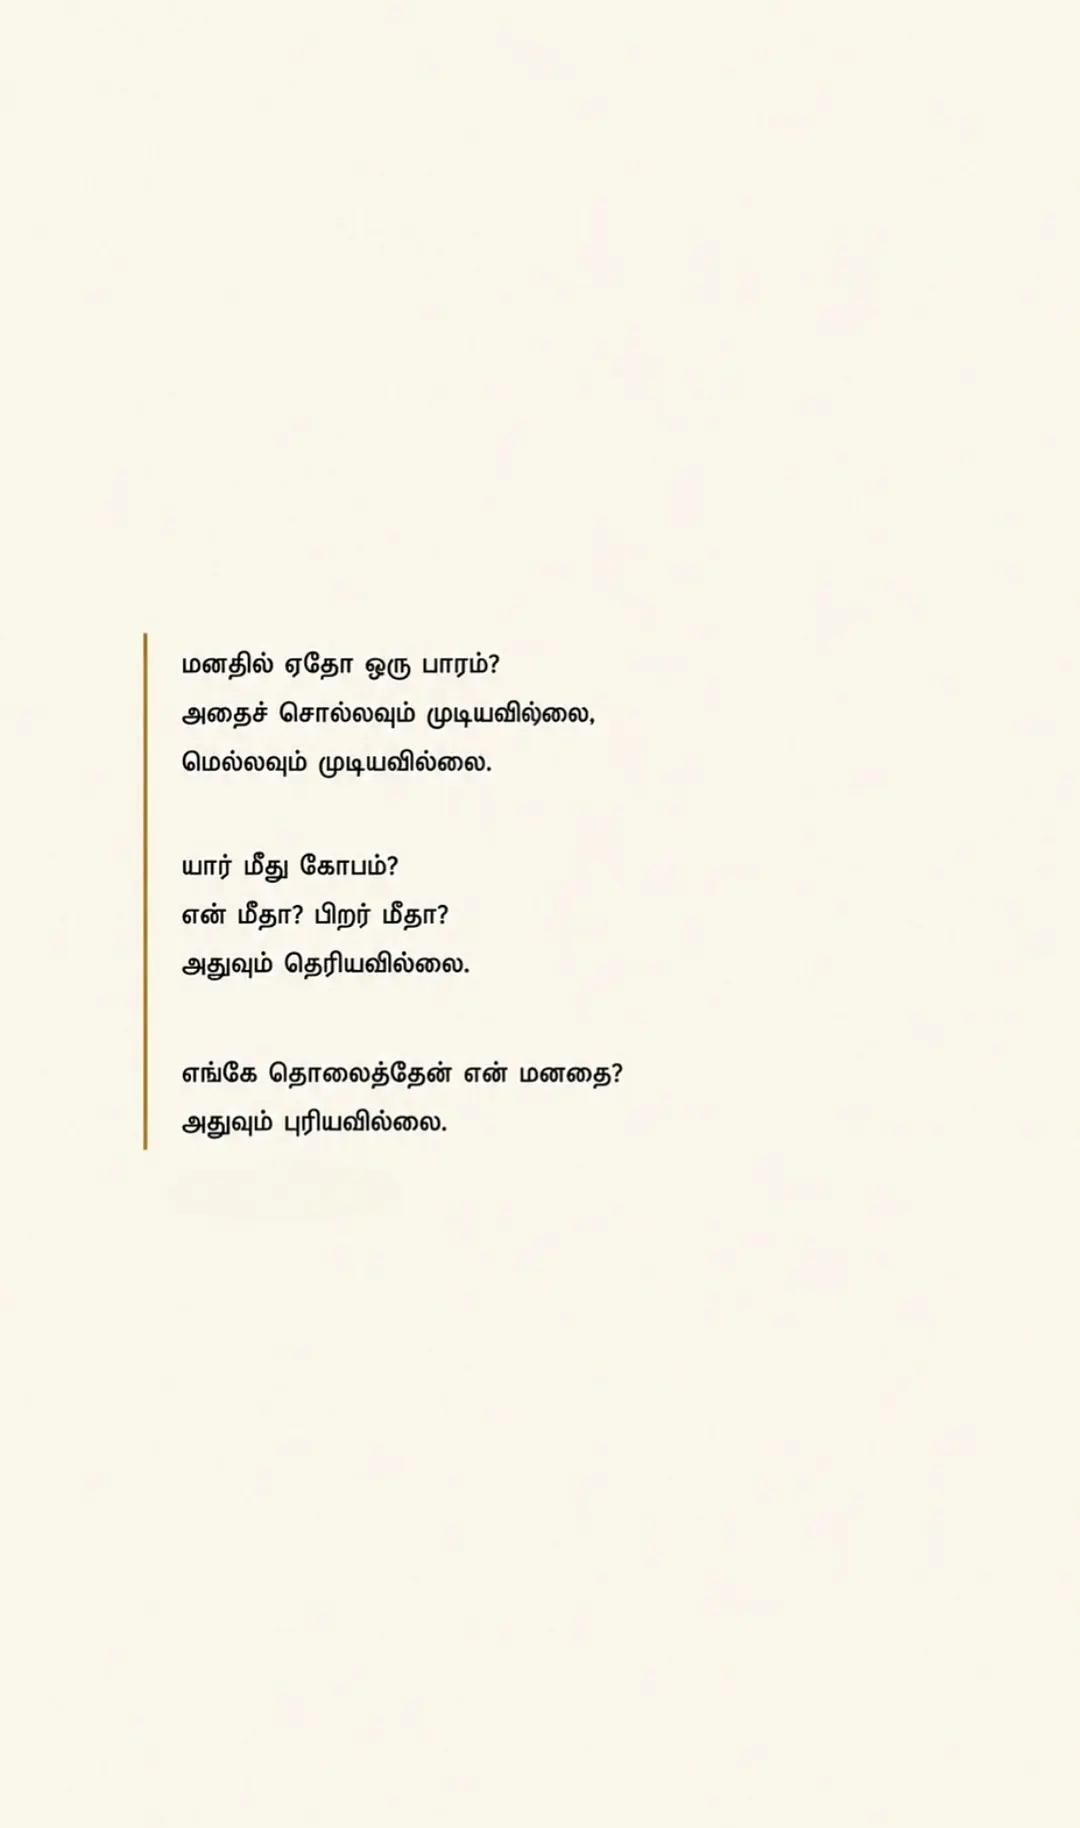 மனதில் ஏதோ ஒரு பாரம்?
அதைச் சொல்லவும் முடியவில்லை,
மெல்லவும் முடியவில்லை.
யார் மீது கோபம்?
என் மீதா? பிறர் மீதா?
அதுவும் தெரியவில்லை.
எங்கே தொலைத்தேன் என் மனதை?
அதுவும் புரியவில்லை.